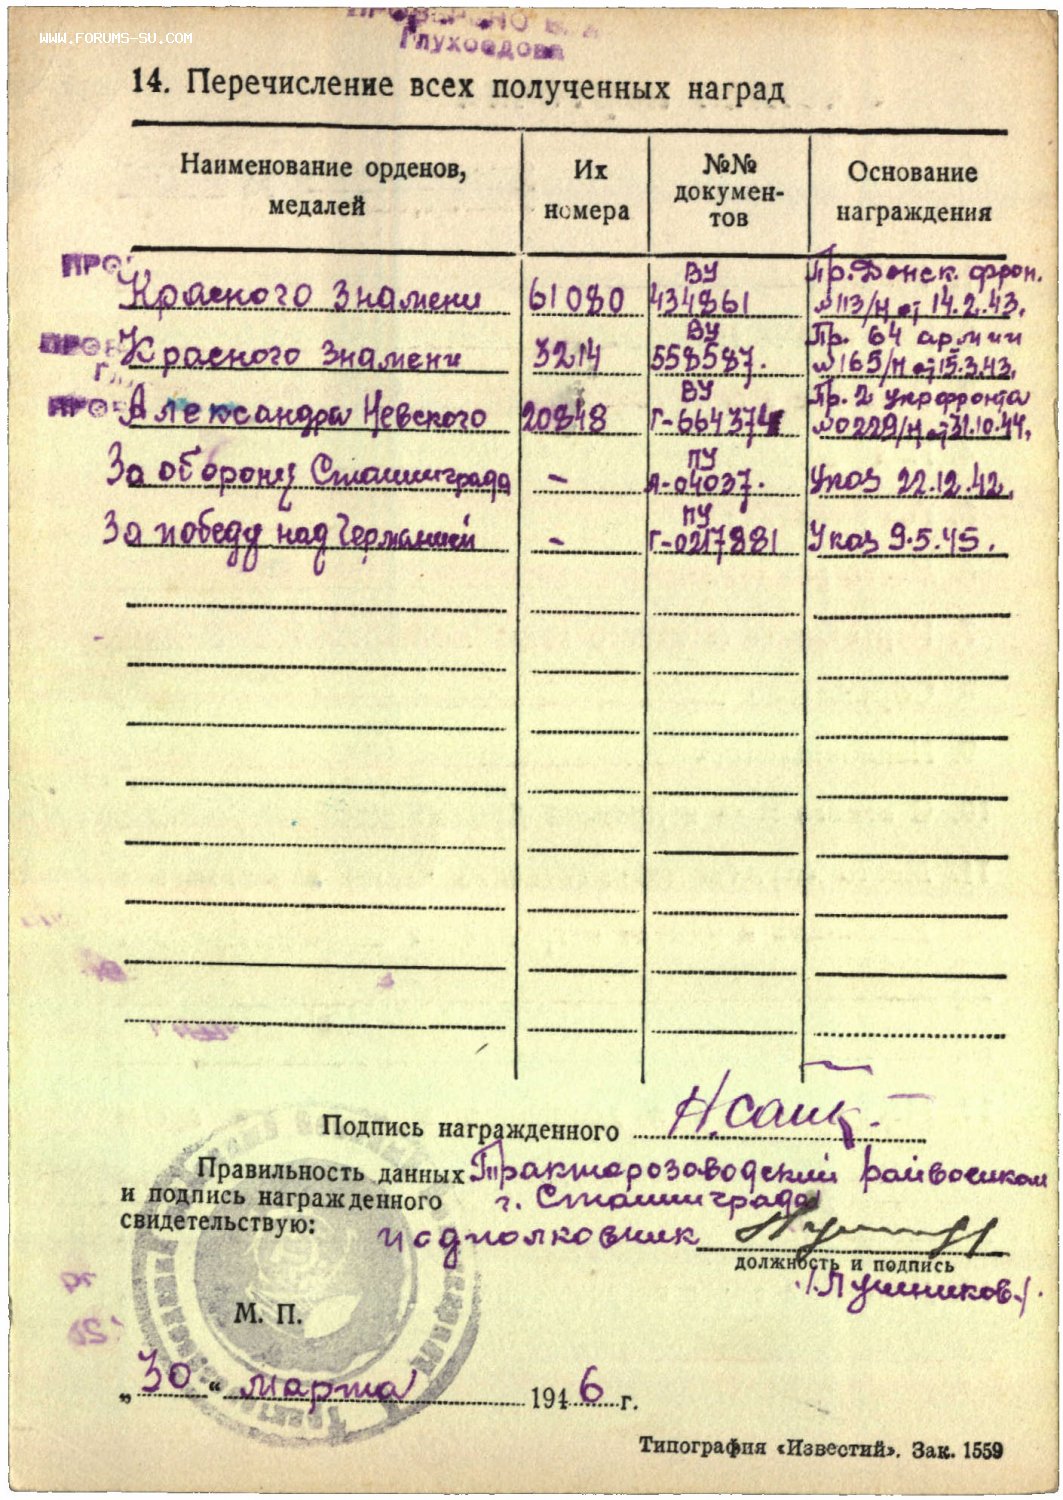 WWW.FORUMS-SU.COM
ПРОВЕРЕНО
Глухоедова
14. Перечисление всех полученных наград
Наименование орденов, медалей
Их номера
№№ докумен-тов
Основание награждения
ПРО
Красного Знамени 61080 ВУ 434861 Пр. Донск. фрон. №113/н от 14.2.43.
ПРОВ
Красного Знамени 3214 ВУ 558587. Пр. 64 армии №165/н от 15.3.43.
ПРОВ
Александра Невского 20848 ВУ Г-664374 Пр. 2 укрфронта №0229/н от 31.10.44.
За оборону Сталинграда – ПУ А-04037. Указ 22.12.42.
За победу над Германией – ПУ Г-0217881 Указ 9.5.45.
Подпись награжденного
Правильность данных Тракторозаводский райвоенком
и подпись награжденного г. Сталинграда
свидетельствую: подполковник
должность и подпись
/Лушников/.
М. П.
„30“ марта 1946 г.
Типография «Известий». Зак. 1559